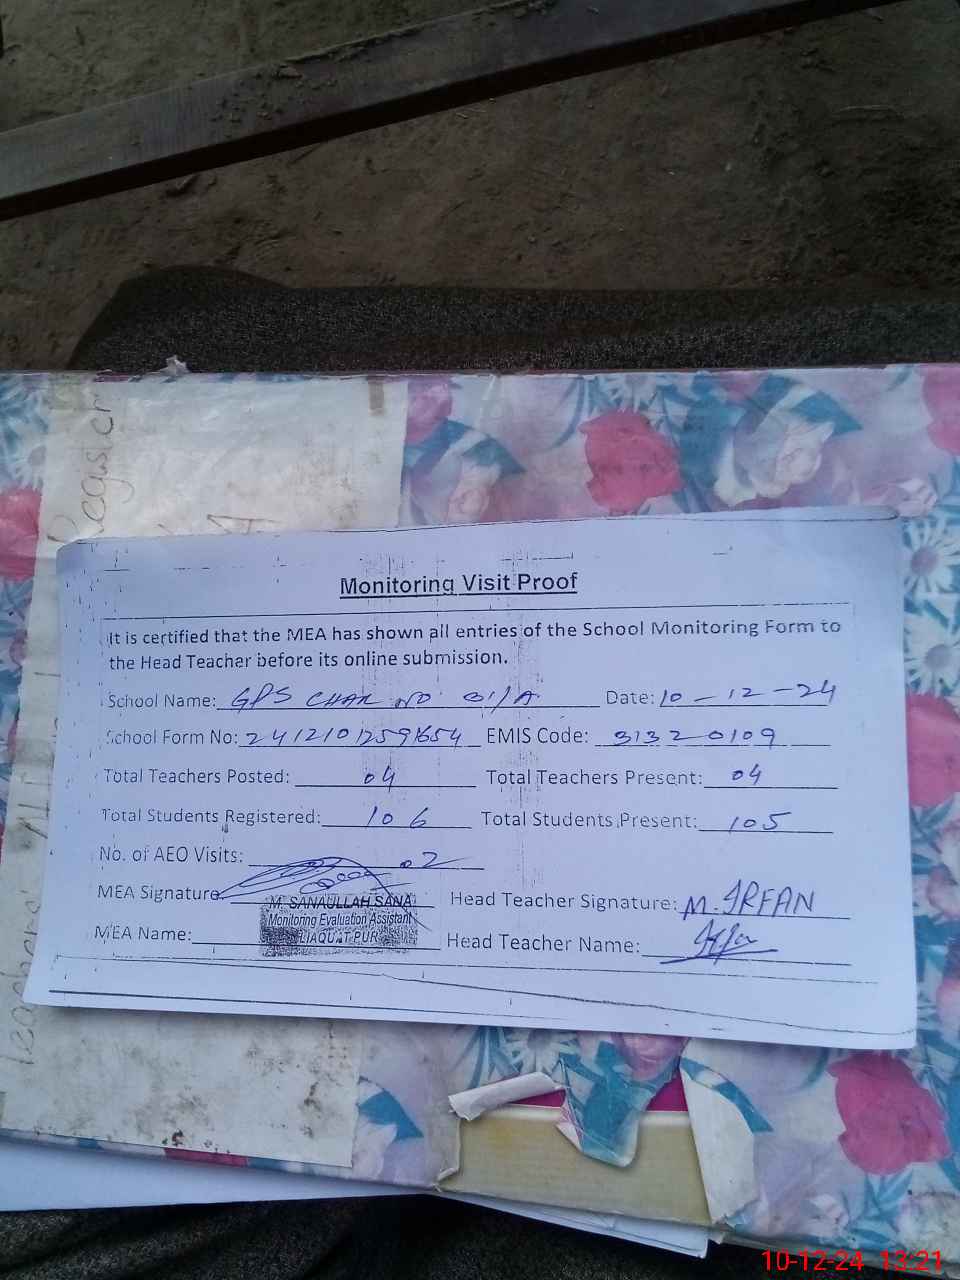 Register
A
Monitoring Visit Proof
It is certified that the MEA has shown all entries of the School Monitoring Form to
the Head Teacher before its online submission.
School Name: GPS CHAK NO 81/A Date: 10-12-24
School Form No: 24121012591654 EMIS Code: 31320109
Total Teachers Posted: 04 Total Teachers Present: 04
Total Students Registered: 106 Total Students Present: 105
No. of AEO Visits: 02
MEA Signature Head Teacher Signature: M. IRFAN
M. SANAULLAH SANA
Monitoring Evaluation Assistant
LIAQUAT PUR
MEA Name: Head Teacher Name:
10-12-24 13:21